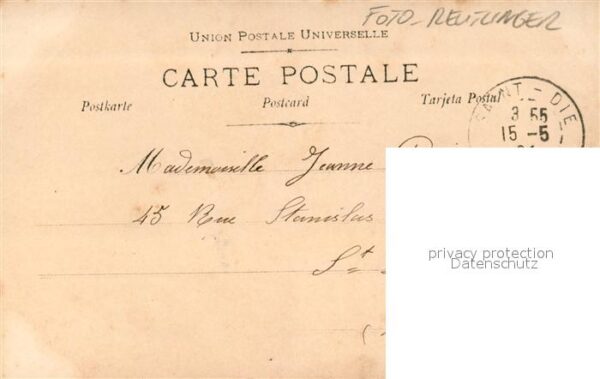 FOTO - REUTLINGER
UNION POSTALE UNIVERSELLE
CARTE POSTALE
Postkarte Postcard Tarjeta Postal
SAINT-DIÉ
3 55
15 -5
Mademoiselle Jeanne
45 Rue Stanislas
St
privacy protection
Datenschutz